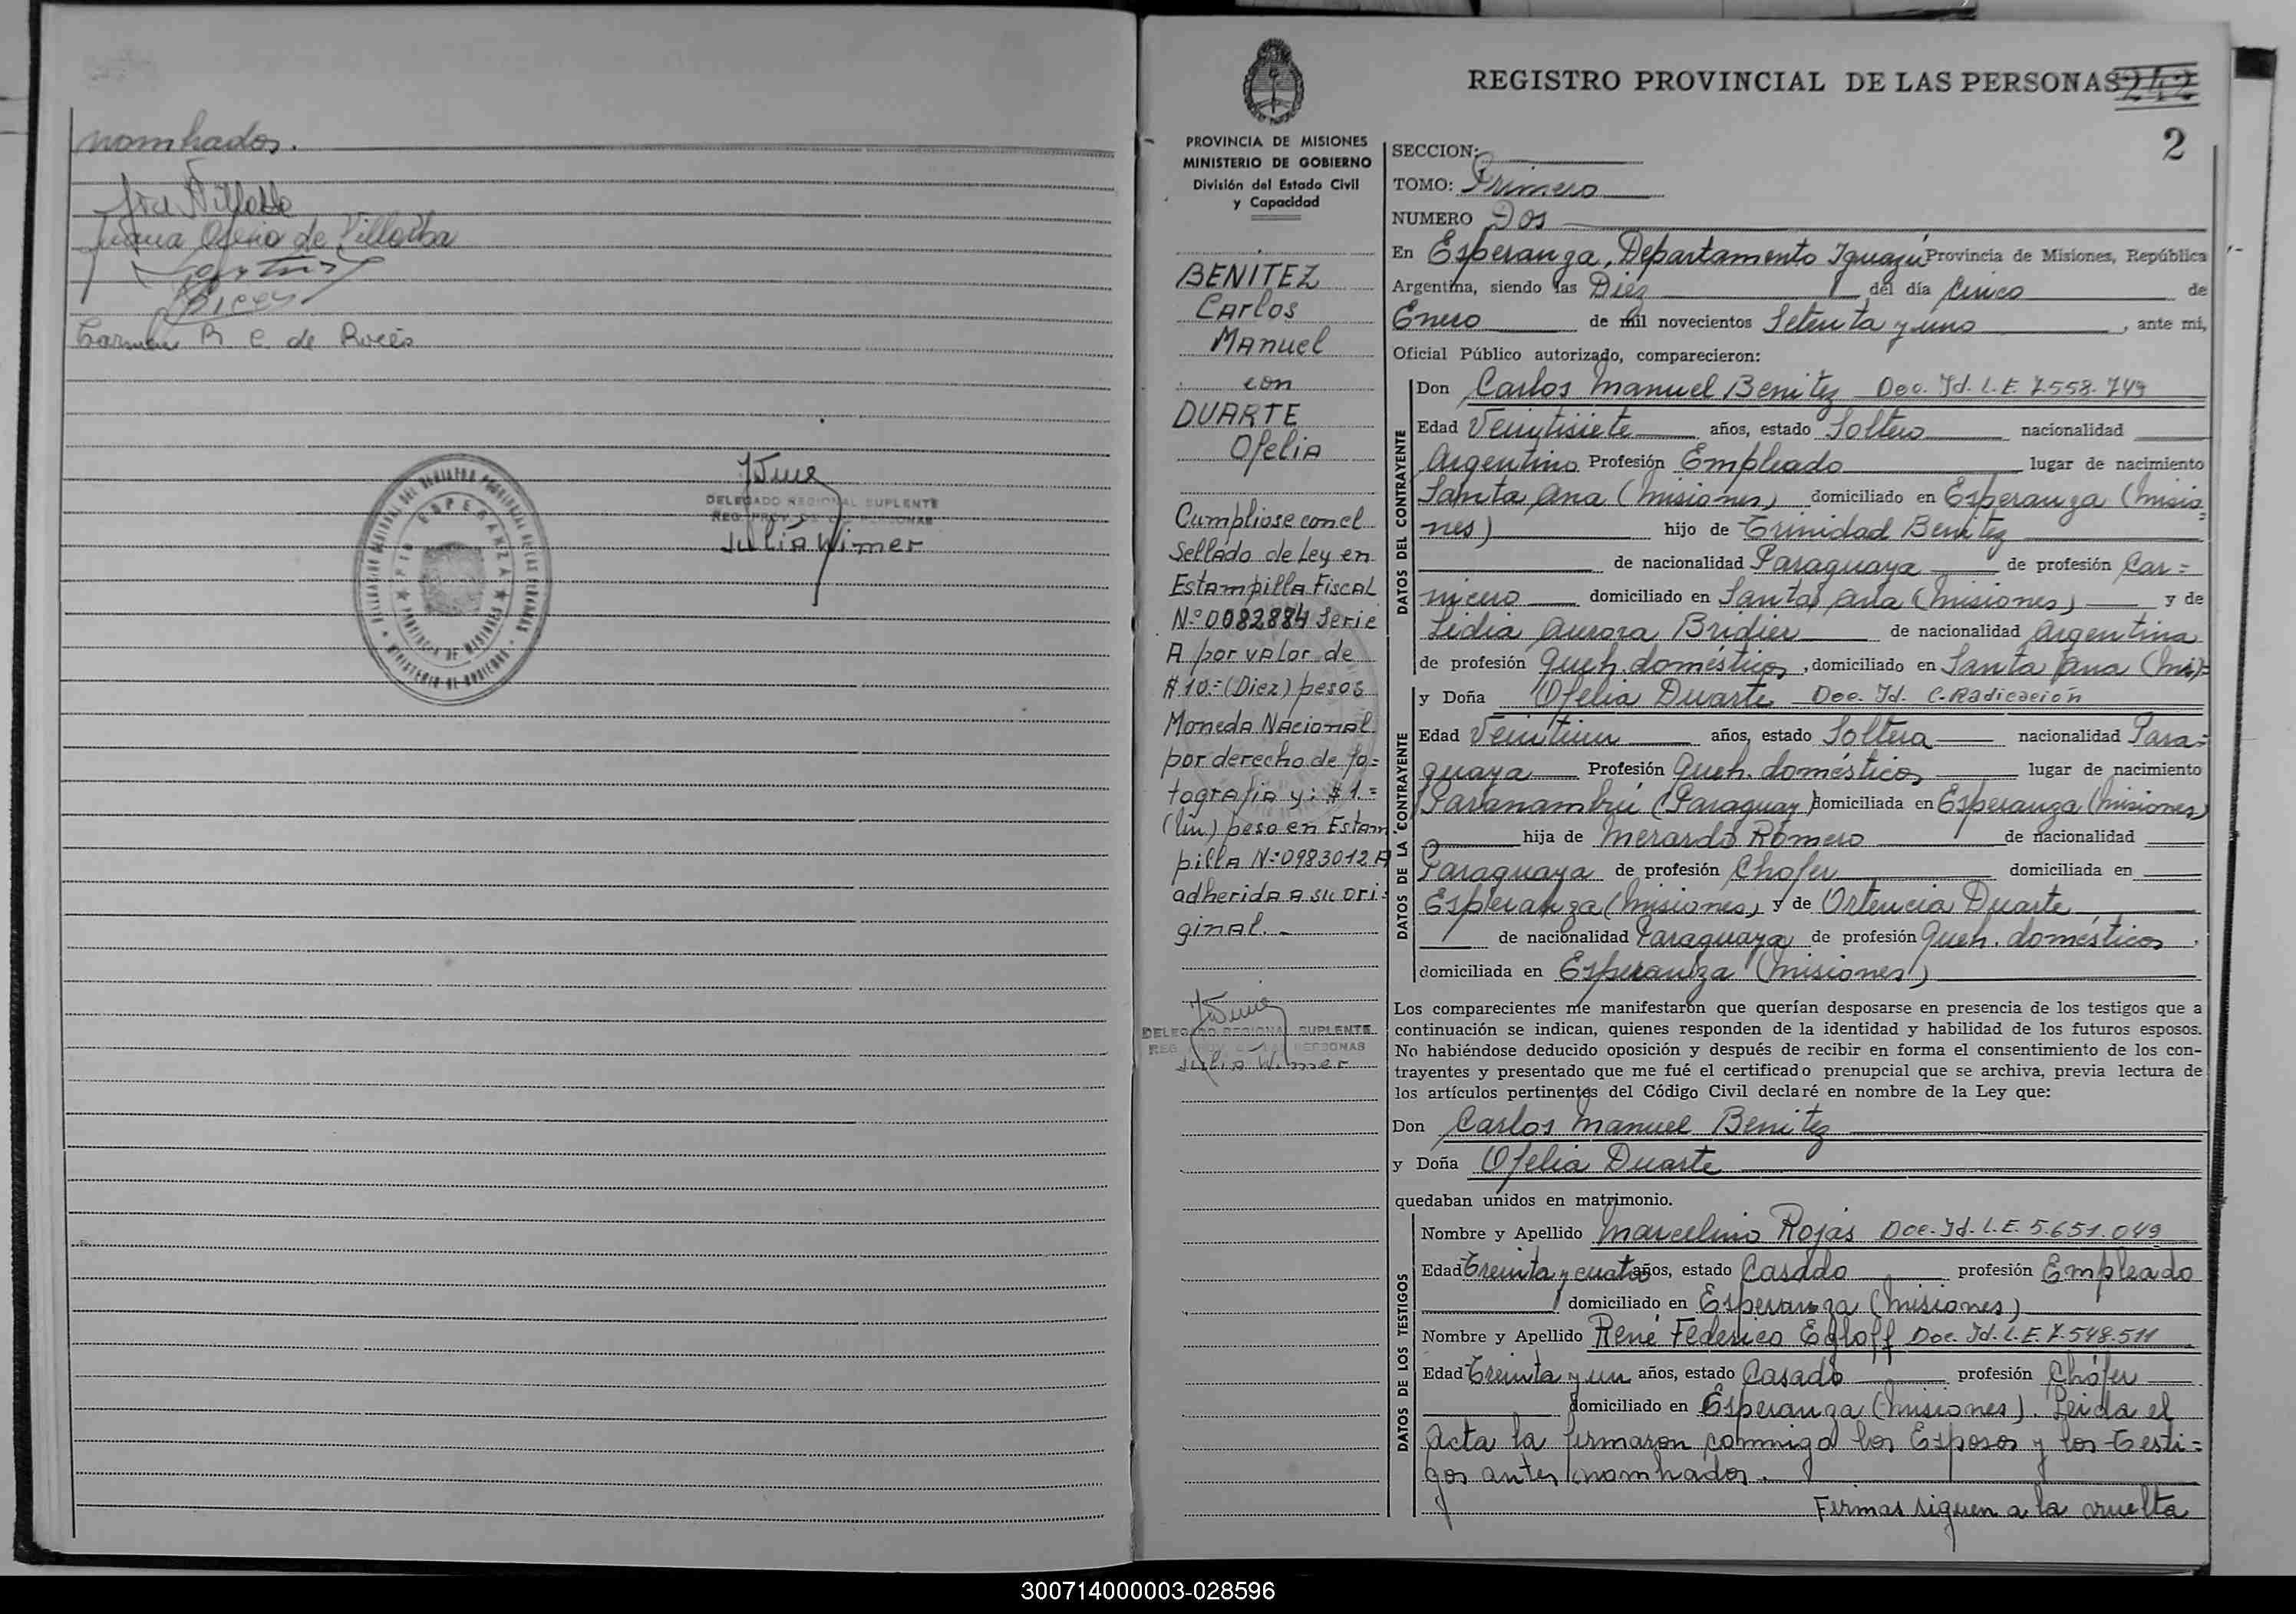 nombrados.
Juana Osorio de Villalba
Carmen R. C. de
DELEGADO REGIONAL SUPLENTE
REG. PROV. DE LAS PERSONAS
Julia Wimer
DELEGACION REGIONAL DEL REGISTRO PROVINCIAL DE LAS PERSONAS
ESPERANZA
PROVINCIA DE MISIONES
MINISTERIO DE GOBIERNO
REGISTRO PROVINCIAL DE LAS PERSONAS 242
2
PROVINCIA DE MISIONES
MINISTERIO DE GOBIERNO
División del Estado Civil
y Capacidad
BENITEZ
Carlos
Manuel
con
DUARTE
Ofelia
Cumpliose con el
Sellado de Ley en
Estampilla Fiscal
Nº 0082884 Serie
A por valor de
$ 10.- (Diez) pesos
Moneda Nacional
por derecho de fo=
tografia y: $ 1.=
(Un) peso en Estam
pilla Nº 0983012 A
adherida a su ori=
ginal.-
DELEGADO REGIONAL SUPLENTE
REG. PROV. DE LAS PERSONAS
Julia Wimer
SECCION:
TOMO: Primero
NUMERO Dos
En Esperanza, Departamento Iguazú Provincia de Misiones, República
Argentina, siendo las Diez del día Cinco de
Enero de mil novecientos Setenta y uno, ante mi,
Oficial Público autorizado, comparecieron:
DATOS DEL CONTRAYENTE
Don Carlos Manuel Benitez Doc. Id. L.E. 7.558.749
Edad Veintisiete años, estado Soltero nacionalidad
Argentino Profesión Empleado lugar de nacimiento
Santa Ana (Misiones) domiciliado en Esperanza (Misio=
nes) hijo de Trinidad Benitez
de nacionalidad Paraguaya de profesión Car=
nicero domiciliado en Santa Ana (Misiones) y de
Lidia Aurora Bridier de nacionalidad Argentina
de profesión Queh. domésticos, domiciliado en Santa Ana (Mis)=
DATOS DE LA CONTRAYENTE
y Doña Ofelia Duarte Doc. Id. C. Radicación
Edad Veintiun años, estado Soltera nacionalidad Para=
guaya Profesión Queh. domésticos lugar de nacimiento
Paranambú (Paraguay) domiciliada en Esperanza (Misiones)
hija de Merardo Romero de nacionalidad
Paraguaya de profesión Chofer domiciliada en
Esperanza (Misiones) y de Ortencia Duarte
de nacionalidad Paraguaya de profesión Queh. domésticos.
domiciliada en Esperanza (Misiones)
Los comparecientes me manifestaron que querían desposarse en presencia de los testigos que a
continuación se indican, quienes responden de la identidad y habilidad de los futuros esposos.
No habiéndose deducido oposición y después de recibir en forma el consentimiento de los con-
trayentes y presentado que me fué el certificado prenupcial que se archiva, previa lectura de
los artículos pertinentes del Código Civil declaré en nombre de la Ley que:
Don Carlos Manuel Benitez
y Doña Ofelia Duarte
quedaban unidos en matrimonio.
DATOS DE LOS TESTIGOS
Nombre y Apellido Marcelino Rojas Doc. Id. L.E. 5.651.049
Edad Treinta y cuatro años, estado Casado profesión Empleado
domiciliado en Esperanza (Misiones)
Nombre y Apellido René Federico Egloff Doc. Id. L.E. 7.548.511
Edad Treinta y un años, estado Casado profesión Chófer
domiciliado en Esperanza (Misiones). Leida el
Acta la firmaron conmigo los Esposos y los Testi=
gos antes nombrados.
Firmas siguen a la vuelta
300714000003-028596